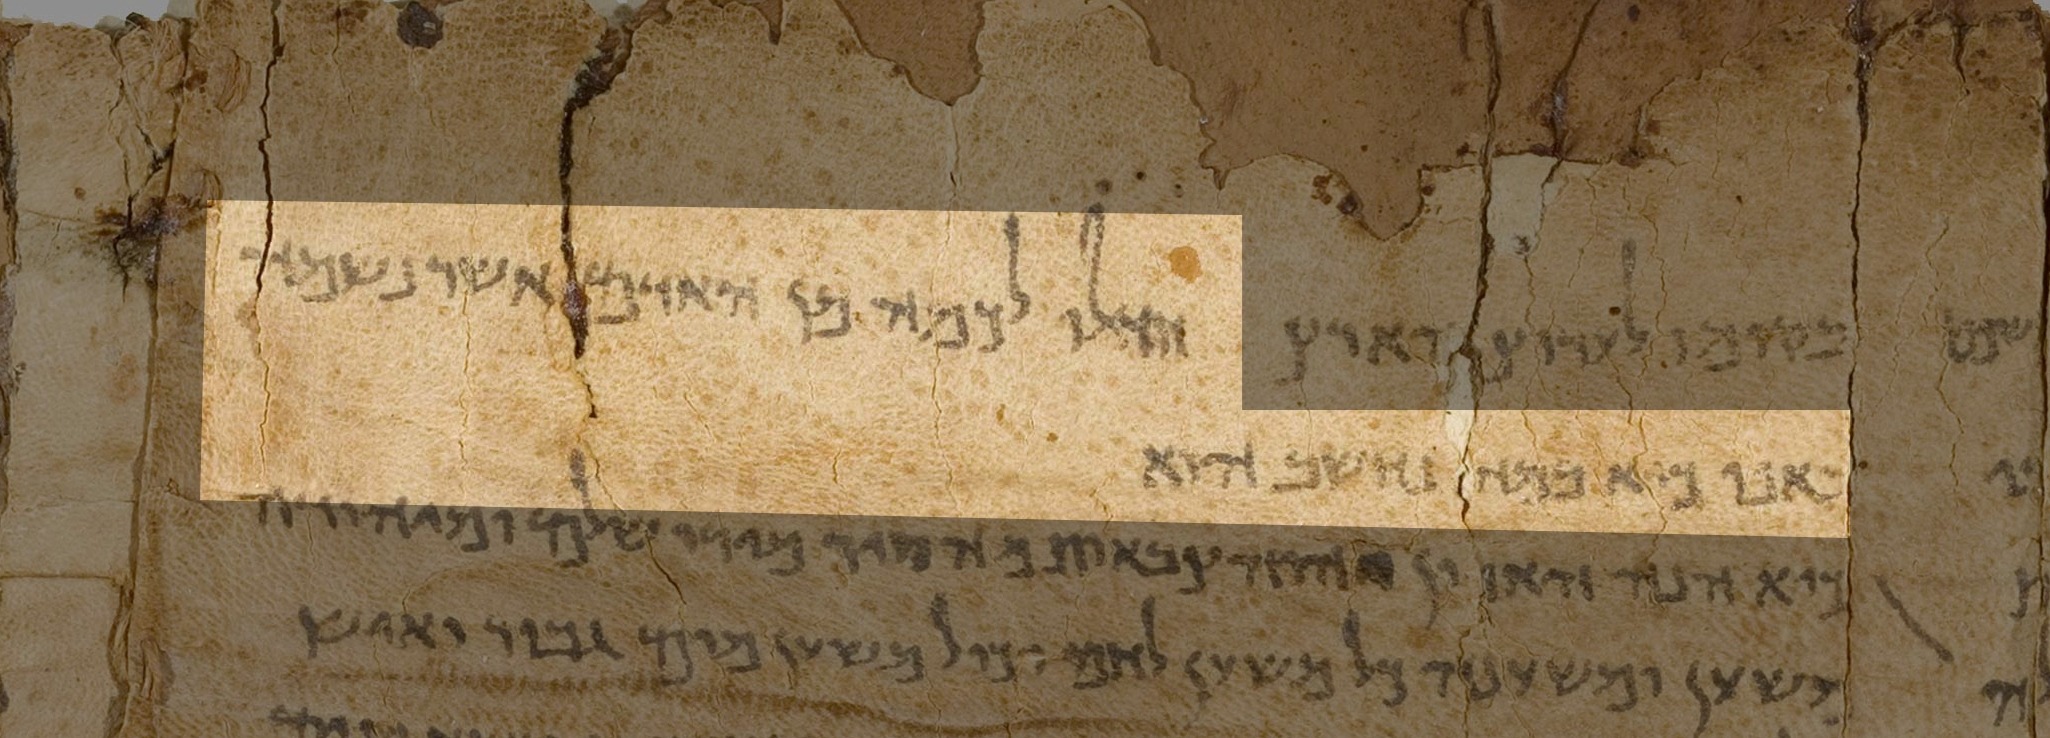 בקומו לערוץ הארץ חדלו לכמה מן האדם אשר נשמה
באפו כיא במה נחשב הוא
כיא הנה האדון יהוה צבאות מסיר מירושלם ומיהודה
משען ומשענה כל משען לחם וכול משען מים גבור ואיש